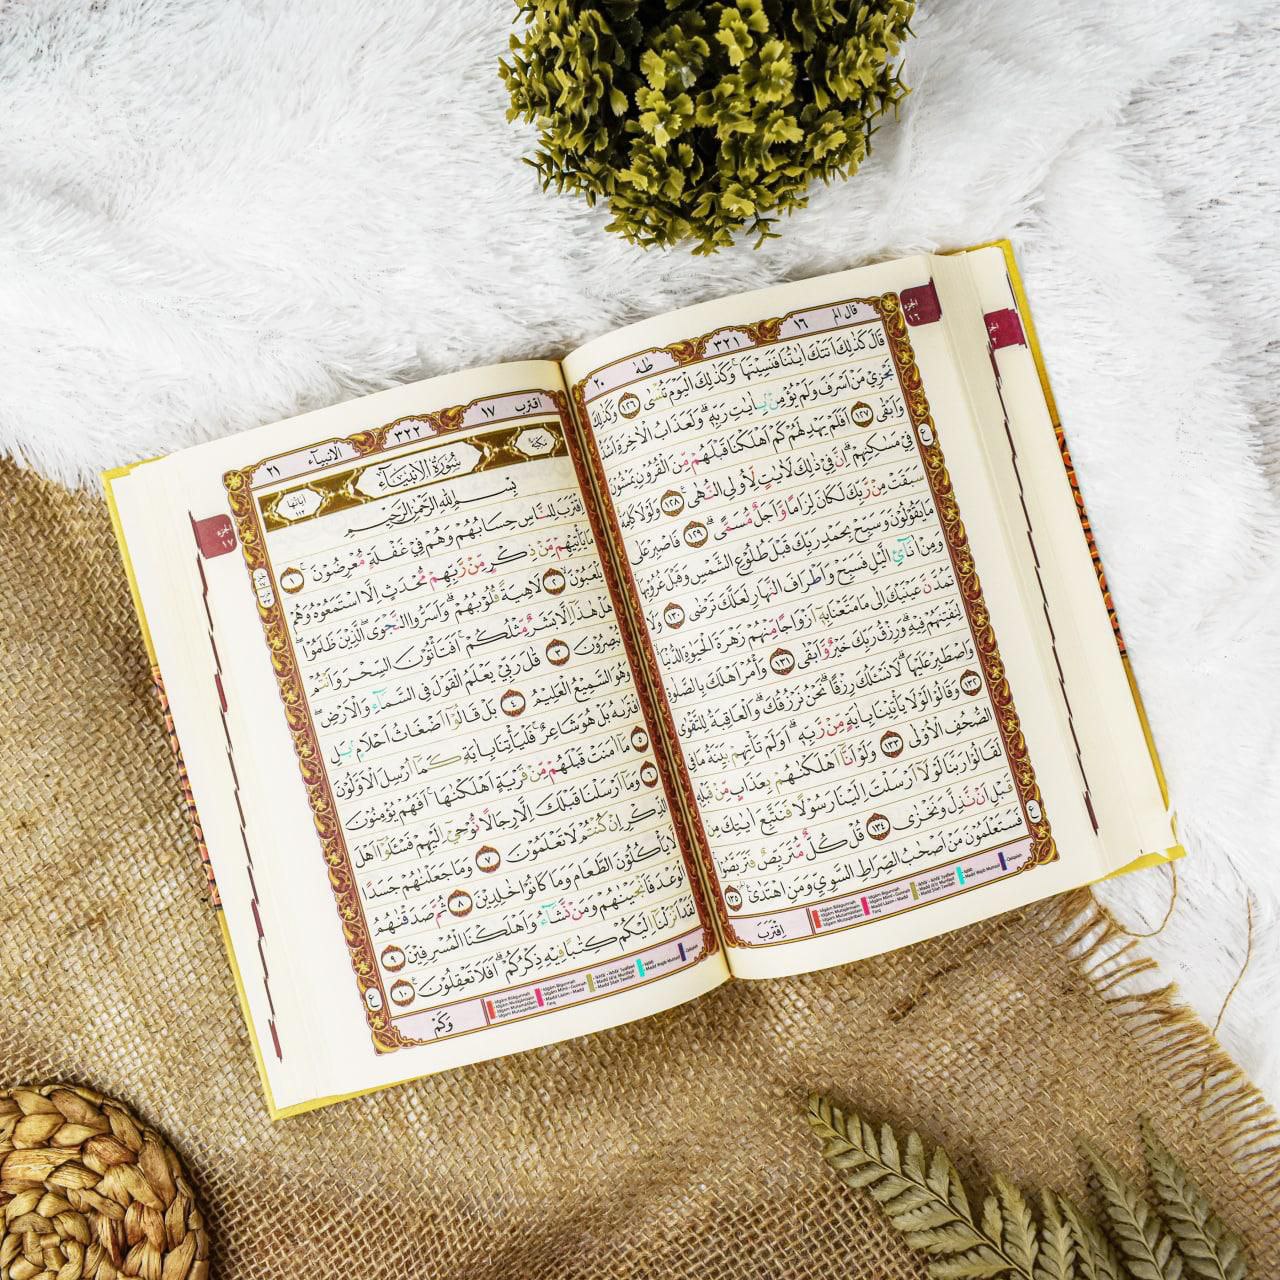 الجزء
١٦
قال الم ١٦ ٣٢١ طٰهٰ ٢٠
قَالَ كَذٰلِكَ اَتَتْكَ اٰيٰتُنَا فَنَسِيْتَهَاۚ وَكَذٰلِكَ الْيَوْمَ تُنْسٰى ١٢٦ وَكَذٰلِكَ
نَجْزِيْ مَنْ اَسْرَفَ وَلَمْ يُؤْمِنْۢ بِاٰيٰتِ رَبِّهٖۗ وَلَعَذَابُ الْاٰخِرَةِ اَشَدُّ
وَاَبْقٰى ١٢٧ اَفَلَمْ يَهْدِ لَهُمْ كَمْ اَهْلَكْنَا قَبْلَهُمْ مِّنَ الْقُرُوْنِ يَمْشُوْنَ
فِيْ مَسٰكِنِهِمْۗ اِنَّ فِيْ ذٰلِكَ لَاٰيٰتٍ لِّاُولِى النُّهٰى ١٢٨ وَلَوْلَا كَلِمَةٌ
سَبَقَتْ مِنْ رَّبِّكَ لَكَانَ لِزَامًا وَّاَجَلٌ مُّسَمًّىۗ ١٢٩ فَاصْبِرْ عَلٰى
مَا يَقُوْلُوْنَ وَسَبِّحْ بِحَمْدِ رَبِّكَ قَبْلَ طُلُوْعِ الشَّمْسِ وَقَبْلَ غُرُوْبِهَا
وَمِنْ اٰنَاۤئِ الَّيْلِ فَسَبِّحْ وَاَطْرَافَ النَّهَارِ لَعَلَّكَ تَرْضٰى ١٣٠ وَلَا
تَمُدَّنَّ عَيْنَيْكَ اِلٰى مَا مَتَّعْنَا بِهٖٓ اَزْوَاجًا مِّنْهُمْ زَهْرَةَ الْحَيٰوةِ الدُّنْيَا
لِنَفْتِنَهُمْ فِيْهِۗ وَرِزْقُ رَبِّكَ خَيْرٌ وَّاَبْقٰى ١٣١ وَأْمُرْ اَهْلَكَ بِالصَّلٰوةِ
وَاصْطَبِرْ عَلَيْهَاۗ لَا نَسْـَٔلُكَ رِزْقًاۗ نَحْنُ نَرْزُقُكَۗ وَالْعَاقِبَةُ لِلتَّقْوٰى
١٣٢ وَقَالُوْا لَوْلَا يَأْتِيْنَا بِاٰيَةٍ مِّنْ رَّبِّهٖۗ اَوَلَمْ تَأْتِهِمْ بَيِّنَةُ مَا فِى
الصُّحُفِ الْاُوْلٰى ١٣٣ وَلَوْ اَنَّآ اَهْلَكْنٰهُمْ بِعَذَابٍ مِّنْ قَبْلِهٖ
لَقَالُوْا رَبَّنَا لَوْلَآ اَرْسَلْتَ اِلَيْنَا رَسُوْلًا فَنَتَّبِعَ اٰيٰتِكَ مِنْ
قَبْلِ اَنْ نَّذِلَّ وَنَخْزٰى ١٣٤ قُلْ كُلٌّ مُّتَرَبِّصٌ فَتَرَبَّصُوْاۚ
فَسَتَعْلَمُوْنَ مَنْ اَصْحٰبُ الصِّرَاطِ السَّوِيِّ وَمَنِ اهْتَدٰى ١٣٥
اِقْتَرَبَ
اقترب ١٧ ٣٢٢ الانبيآء ٢١
مكية سُوْرَةُ الْاَنْبِيَاۤءِ آياتها ١١٢
بِسْمِ اللّٰهِ الرَّحْمٰنِ الرَّحِيْمِ
الجزء
١٧
اِقْتَرَبَ لِلنَّاسِ حِسَابُهُمْ وَهُمْ فِيْ غَفْلَةٍ مُّعْرِضُوْنَۚ ١
مَا يَأْتِيْهِمْ مِّنْ ذِكْرٍ مِّنْ رَّبِّهِمْ مُّحْدَثٍ اِلَّا اسْتَمَعُوْهُ وَهُمْ
يَلْعَبُوْنَۙ ٢ لَاهِيَةً قُلُوْبُهُمْۗ وَاَسَرُّوا النَّجْوَى الَّذِيْنَ ظَلَمُوْاۖ
هَلْ هٰذَآ اِلَّا بَشَرٌ مِّثْلُكُمْۚ اَفَتَأْتُوْنَ السِّحْرَ وَاَنْتُمْ
تُبْصِرُوْنَ ٣ قٰلَ رَبِّيْ يَعْلَمُ الْقَوْلَ فِى السَّمَاۤءِ وَالْاَرْضِۖ
وَهُوَ السَّمِيْعُ الْعَلِيْمُ ٤ بَلْ قَالُوْٓا اَضْغَاثُ اَحْلَامٍۢ بَلِ
افْتَرٰىهُ بَلْ هُوَ شَاعِرٌۚ فَلْيَأْتِنَا بِاٰيَةٍ كَمَآ اُرْسِلَ الْاَوَّلُوْنَ
٥ مَآ اٰمَنَتْ قَبْلَهُمْ مِّنْ قَرْيَةٍ اَهْلَكْنٰهَاۚ اَفَهُمْ يُؤْمِنُوْنَ
٦ وَمَآ اَرْسَلْنَا قَبْلَكَ اِلَّا رِجَالًا نُّوْحِيْٓ اِلَيْهِمْ فَسْـَٔلُوْٓا اَهْلَ
الذِّكْرِ اِنْ كُنْتُمْ لَا تَعْلَمُوْنَ ٧ وَمَا جَعَلْنٰهُمْ جَسَدًا
لَّا يَأْكُلُوْنَ الطَّعَامَ وَمَا كَانُوْا خٰلِدِيْنَ ٨ ثُمَّ صَدَقْنٰهُمُ
الْوَعْدَ فَاَنْجَيْنٰهُمْ وَمَنْ نَّشَاۤءُ وَاَهْلَكْنَا الْمُسْرِفِيْنَ ٩
لَقَدْ اَنْزَلْنَآ اِلَيْكُمْ كِتٰبًا فِيْهِ ذِكْرُكُمْۗ اَفَلَا تَعْقِلُوْنَ ١٠
وَكَمْ